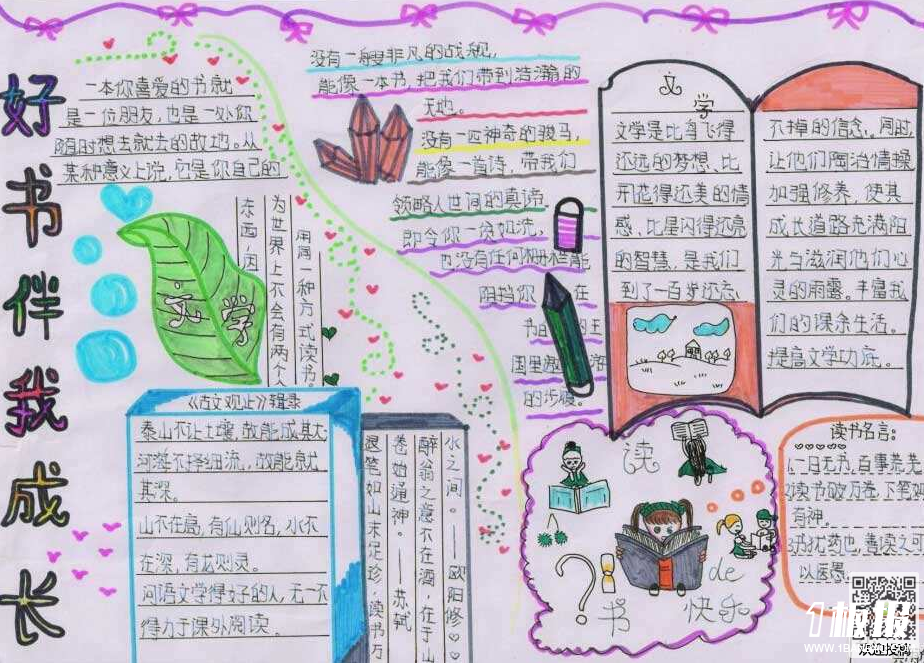 好书伴我成长
一本你喜爱的书就
是一位朋友，也是一处你
随时想去就去的故地。从
某种意义上说，它是你自己的
东西，因
为世界上不会有两个人
用同一种方式读书。
文学
没有一艘非凡的战舰，
能像一本书，把我们带到浩瀚的
天地。
没有一匹神奇的骏马，
能像一首诗，带我们
领略人世间的真谛。
即令你一贫如洗，
也没有任何栅栏能
阻挡你 在
书的 王
国里遨
的步履。
文学
文学是比鸟飞得
还远的梦想、比
开花得还美的情
感、比星闪得还亮
的智慧，是我们
到了一百岁还忘
不掉的信念。同时
让他们陶冶情操
加强修养，使其
成长道路充满阳
光与滋润他们心
灵的雨露。丰富我
们的课余生活。
提高文学功底。
《古文观止》辑录
泰山不让土壤，故能成其大
河海不择细流，故能就
其深。
山不在高，有仙则名，水不
在深，有龙则灵。
问语文学得好的人，无一不
得力于课外阅读。
退笔如山未足珍，读书万
卷始通神。——苏轼
醉翁之意不在酒，在乎山
水之间。——欧阳修
读
书
de
快乐
?
读书名言：
1、一日无书，百事荒芜
2读书破万卷，下笔如
有神。
3书犹药也，善读之可
以医愚。
1板报
WWW.1BANBAO.COM
欢迎投稿